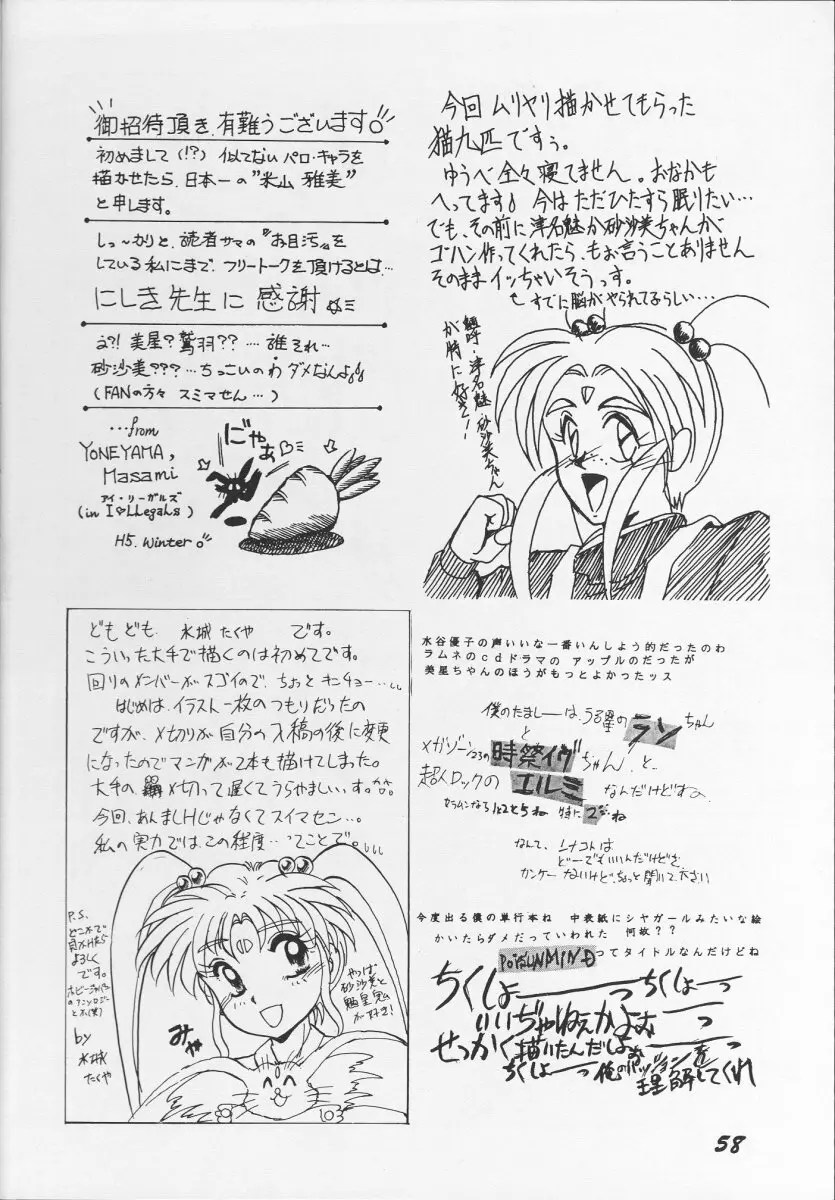 御招待頂き、有難うございます。
初めまして(!?) 似てない パロ・キャラを
描かせたら、日本一の"米山 雅美"
と申します。
しっ〜かりと、読者サマの『お目汚』を
している私にまで、フリートークを頂けるとは…
にしき先生に 感謝
え?! 美星? 鷲羽?? …. 誰それ…
砂沙美???… ちっこいのわ ダメなんよ
(FANの方々 スミマせん…)
…from
YONEYAMA,
Masami
アイ・リーガルズ
(in I♡LLegaLs)
H5. Winter。
にゃあ
今回 ムリヤリ描かせてもらった
猫九匹ですぅ。
ゆうべ全々寝てません。おなかも
へってます 今はただひたすら眠りたい…
でも、その前に津名魅か砂沙美ちゃんが
ゴハン作ってくれたら、もお言うことありません
そのままイッちゃいそうっす。
すでに脳がやられてるらしい…
魎呼・津名魅・砂沙美ちゃん
が特に好き!
どもども、水城 たくや です。
こういった大手で描くのは初めてです。
回りのメンバーがスゴイので、ちょっとキンチョー…
はじめは、イラスト一枚のつもりだったの
ですが、〆切りが自分の入稿の後に変更
になったのでマンガが2本も描けてしまった。
大手の〆切って遅くてうらやましいっす。
今回、あんましHじゃなくてスイマセン…。
私の実力では、この程度…ってことで。
P.S.
よろしく
です。
by
水城
たくや
やっぱ
砂沙美と
が好き!
みゃ
水谷優子の声いいな一番いんしよう的だったのわ
ラムネのｃｄドラマの アップルのだったが
美星ちゃんのほうがもっとよかったッス
僕のたましーは、うる星のランちゃん
と
メガゾーン23の時祭イヴちゃん、と
超人ロックの エルミ なんだけどすよ
なんて、ミナコトは
どーでもいいんだけどさ
カンケーないけど、ちょっと聞いて下さい
今度出る僕の単行本ね 中表紙にシヤガールみたいな絵
かいたらダメだっていわれた 何故??
POiSUNMINDってタイトルなんだけどね
ちくしょーーっちくしょーっ
いいぢゃねえかよおーっ
せっかく描いたんだしよおーー
ちくしょーっ俺のパッションを
理解してくれ
58